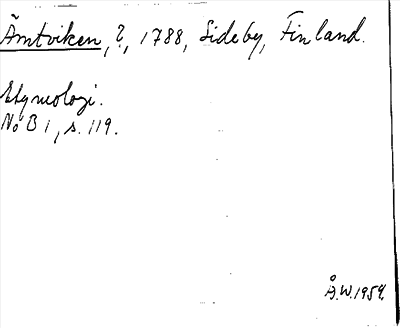 Ämtviken, ?, 1788, Sideby, Finland.
Etymologi.
NoB 1, s. 119.
Å.W. 1959.